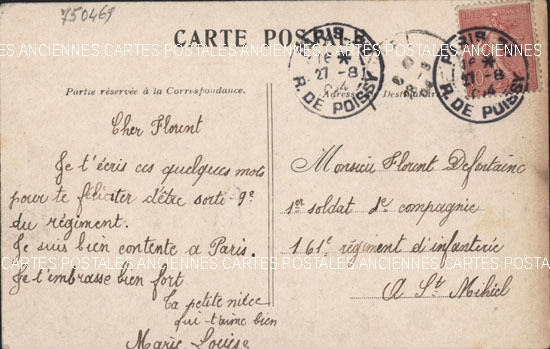 750469
CARTE POSTALE
PARIS
16 *
27 - 8
04
R. DE POISSY
PARIS
16 *
27 - 8
04
R. DE POISSY
Partie réservée à la Correspondance.
Adresse du Destinataire
Cher Florent
Je t'écris ces quelques mots
pour te féliciter d'être sorti 9e
du régiment.
Je suis bien contente a Paris.
Je t'embrasse bien fort
ta petite nièce
qui t'aime bien
Marie Louise
Monsieur Florent Defontaine
1er soldat 1e compagnie
161e régiment d'infanterie
A St Mihiel
CARTES POSTALES ANCIENNES CARTES POSTALES ANCIENNES CARTES POSTALES ANCIENNES